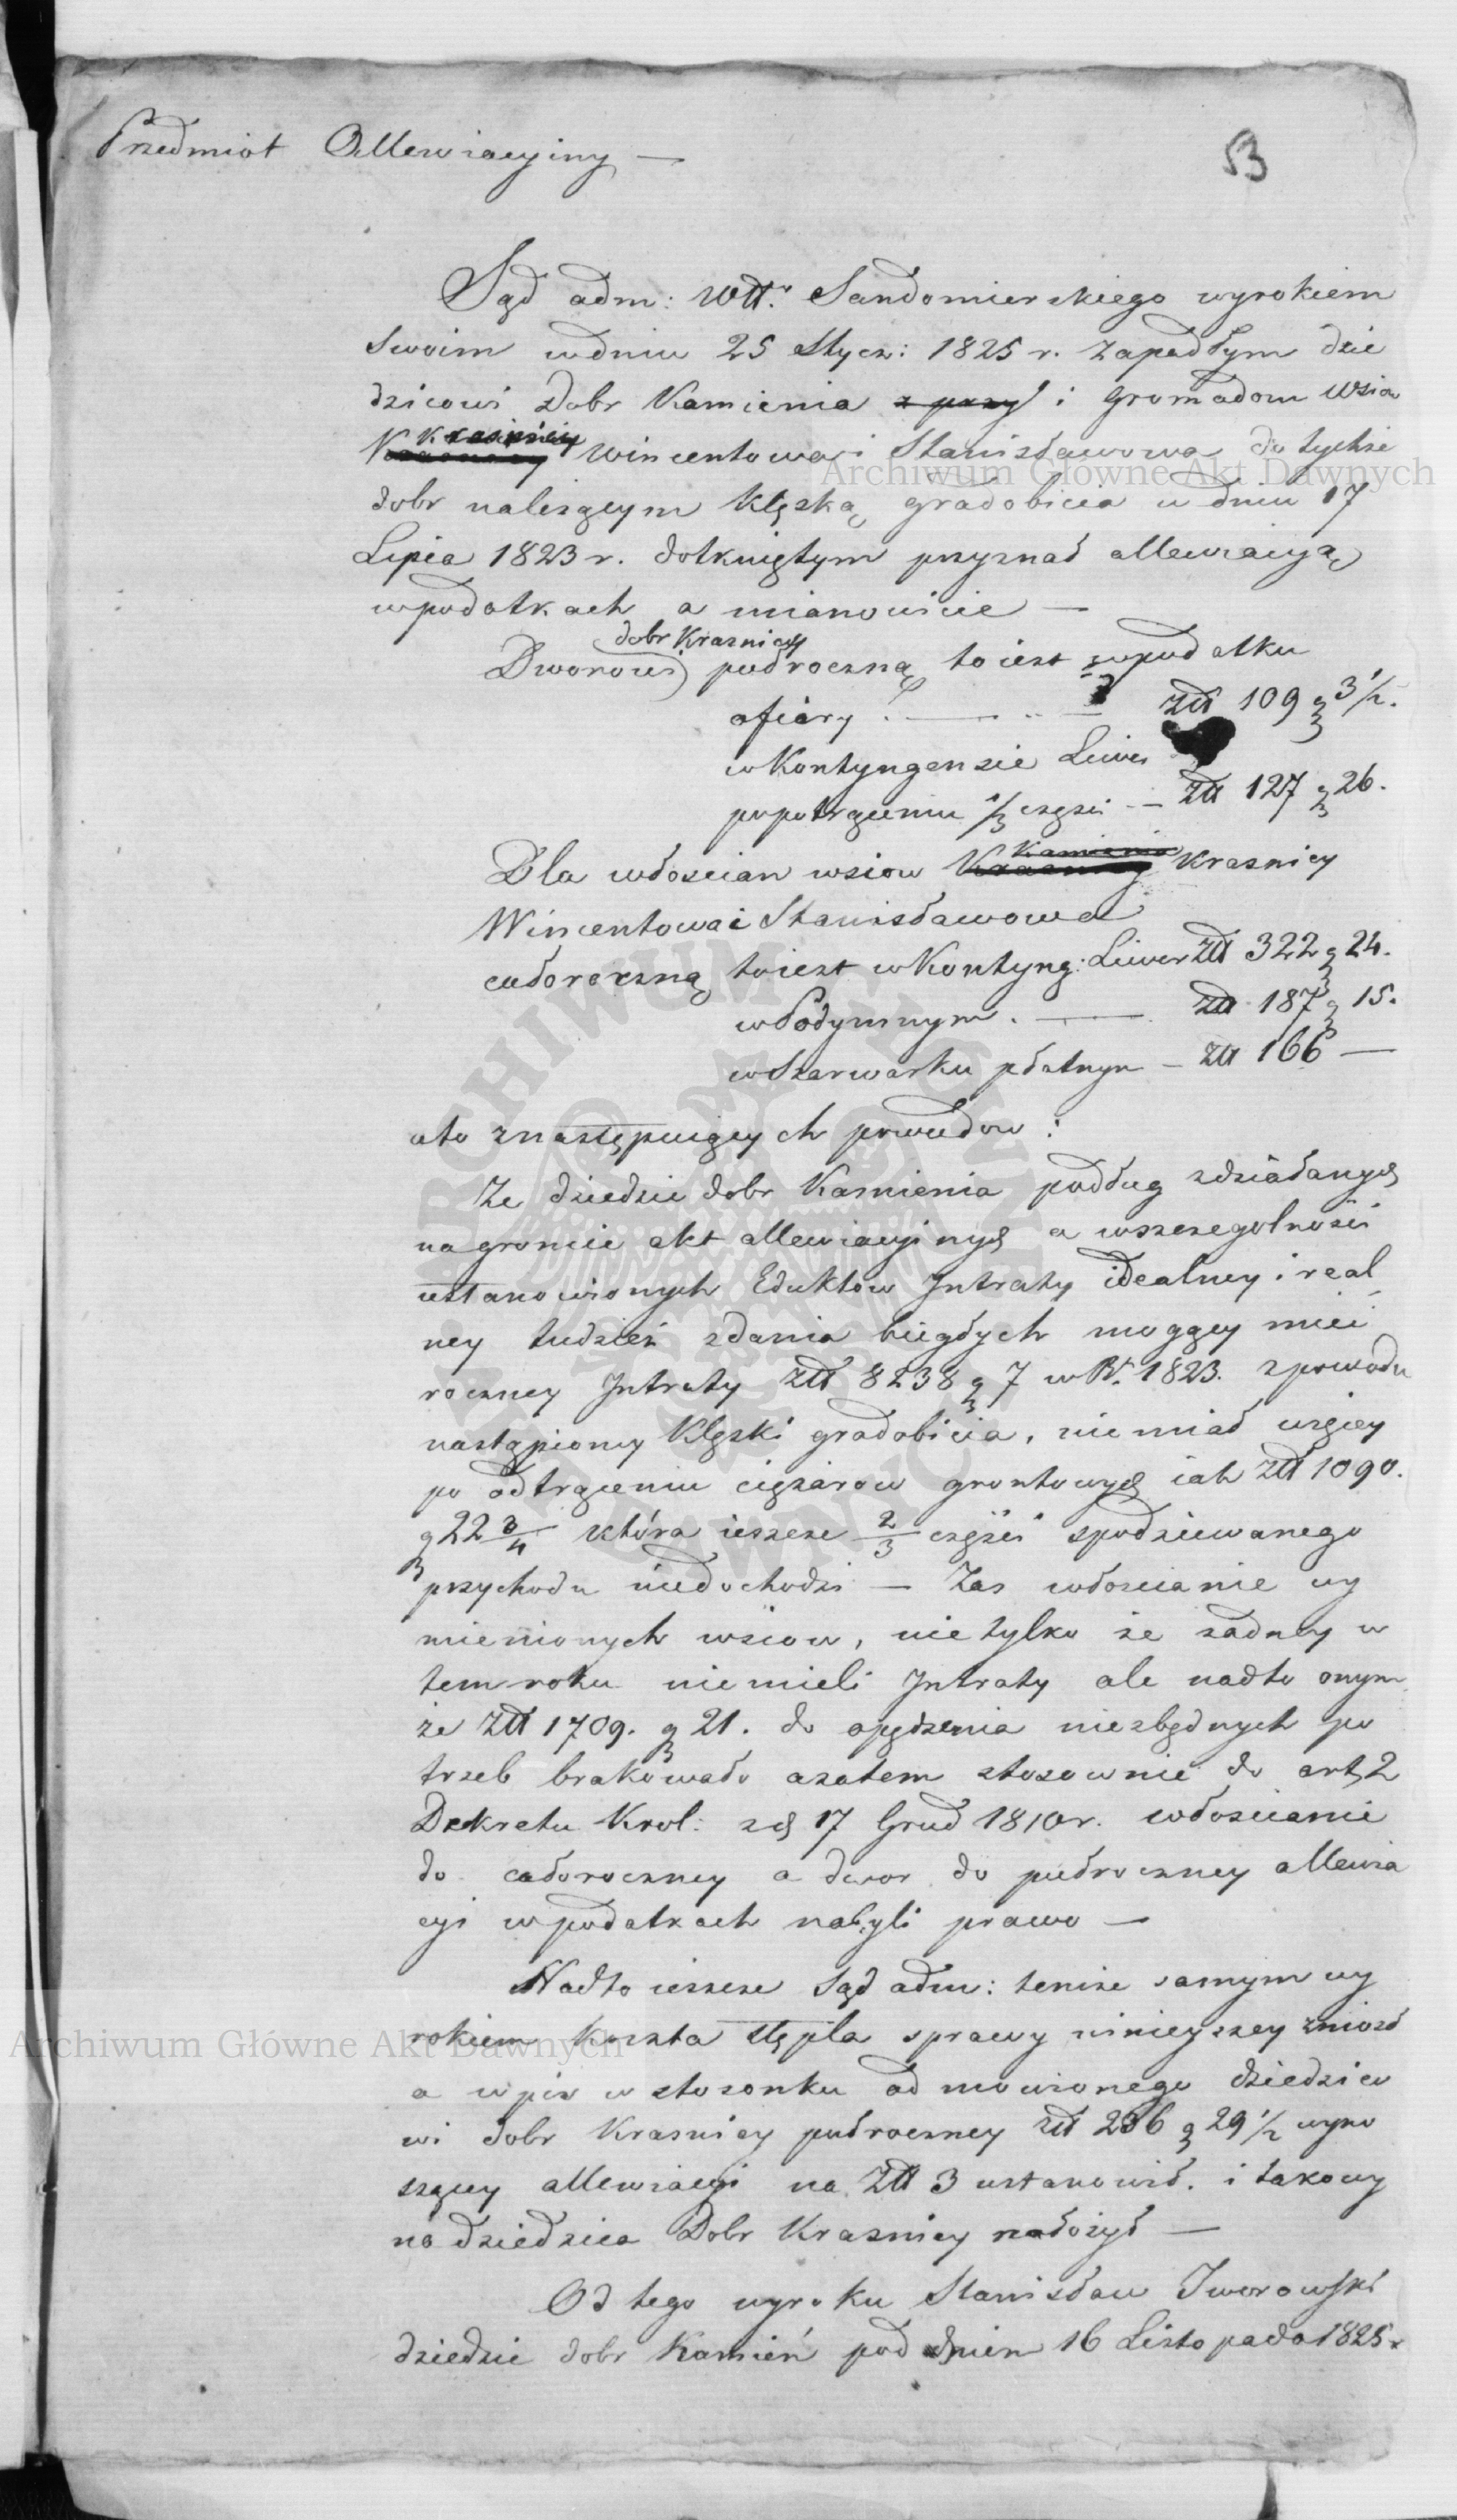 Przedmiot Allewiacyiny —
53
Sąd adm: Wtt. Sandomierskiego wyrokiem
swoim w dniu 25 Stycz: 1825 r. zapadłym dzie
dzicowi Dobr Kamienia z przy i gromadom wsiow
Krasnicy Wincentowa i Stanisławowa do tychże
dobr należącym klęską gradobicia w dniu 17
Lipca 1823 r. dotkniętym przyznał allewiacyią
w podatkach a mianowicie —
dobr Krasnicy
Dworowi pułroczną to iest w podatku
ofiary . — .. — złł 109 g 3 1/2.
w Kontyngensie Liwer
po potrąceniu 1/3 części — złł 127 g 26.
Kamienia
Dla włoscian wsiow Krasnicy Krasnicy
Wincentowa i Stanisławowa
całoroczną to iest w Kontyng: Liwer złł 322 g 24.
w Podymnym . — złł 187 g 15.
w Szarwarku płatnym — złł 166 —
a to z następuiących powodow :
Że dziedzic dobr Kamienia podług zdziałanych
na groncie akt allewiacyinych a w szczegolności
ustanowionych Eduktow Intraty idealney i real
ney tudzież zdania biegłych mogący mieć
roczney Intraty złł 8238 g 7 w R. 1823. z powodu
nastąpioney klęski gradobicia, nie miał więcey
po odtrąceniu ciężarow grontowych iak złł 1090.
g 22 3/4 która ieszcze 2/3 części spodziewanego
przychodu niedochodzi — Zas włoscianie wy
mienionych wsiow, nie tylko że żadney w
tem roku nie mieli Intraty ale nadto onym
że złł 1709. g 21. do opędzenia niezbędnych po
trzeb brakowało azatem stosownie do art. 2
Dekretu Krol: z d. 17 Grud 1810 r. włoscianie
do całoroczney a dwor do pułroczney allewia
cyi w podatkach nabyli prawo —
Nadto ieszcze Sąd adm: temże samym wy
rokiem koszta stępla sprawy ninieyszey zniosł
a wpis w stosonku odmowionego dziedzico
wi dobr Krasnicy pułroczney złł 236 g 29 1/2 wyno
szącey allewiacyi na złł 3 ustanowił. i takowy
na dziedzica Dobr Krasnicy nałożył —
Od tego wyroku Stanisław Jworowski
dziedzic dobr Kamień pod dniem 16 Listopada 1825 r
Archiwum Główne Akt Dawnych
Archiwum Główne Akt Dawnych